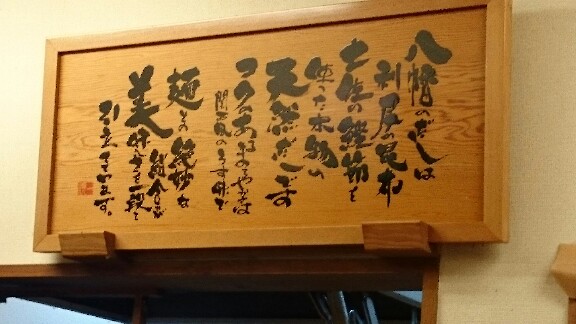 八幡のだしは
利尻の昆布
土佐の鰹節を
使った本物の
天然だしです
コクのあるまろやかさは
関西風のうす味で
麺との絶妙な
融合が
美味さを一段と
引立てています。